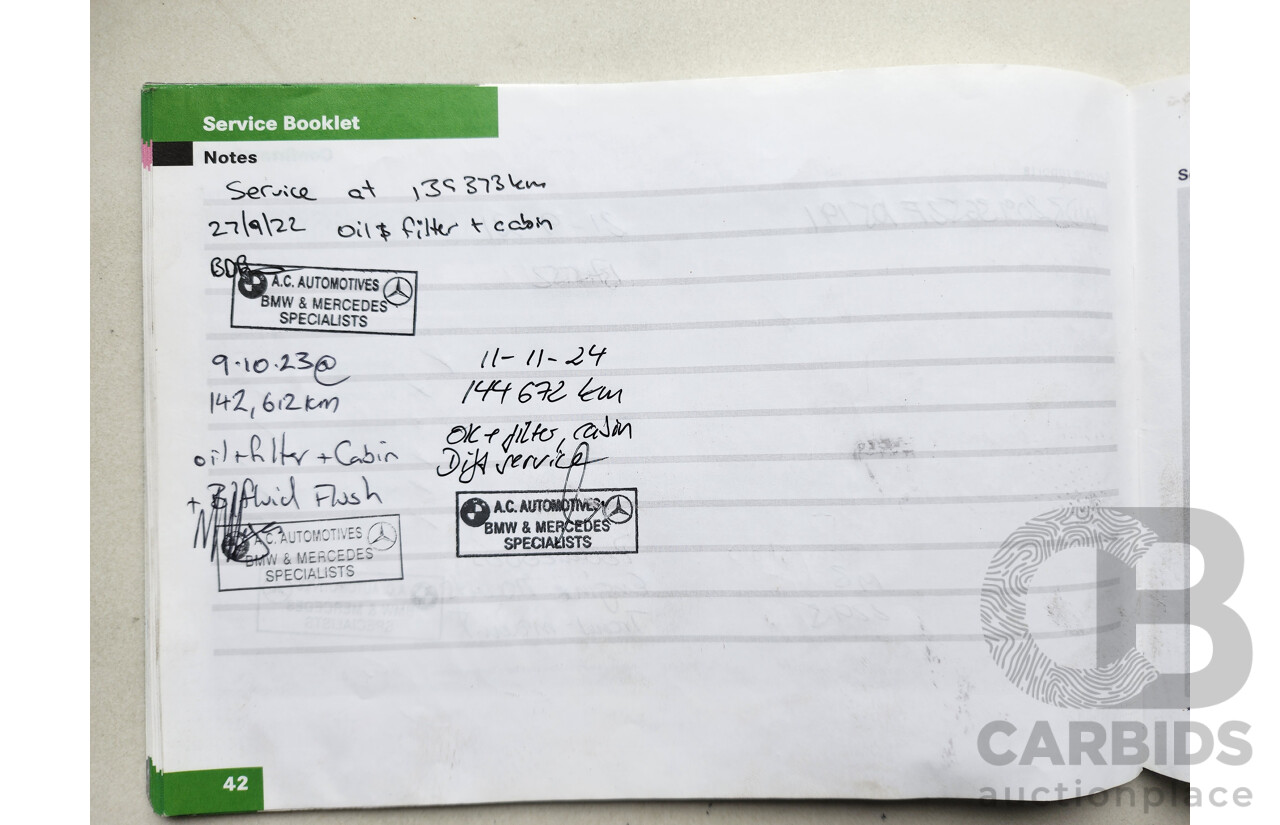 Service Booklet
Notes
Service at 139373km
27/9/22 oil & filter + cabin
A.C. AUTOMOTIVES
BMW & MERCEDES
SPECIALISTS
9.10.23@
142,612km
oil + filter + Cabin
+ B/fluid Flush
A.C. AUTOMOTIVES
BMW & MERCEDES
SPECIALISTS
11-11-24
144672 km
filter, cabin
Diff service
A.C. AUTOMOTIVES
BMW & MERCEDES
SPECIALISTS
42
CARBIDS
auctionplace